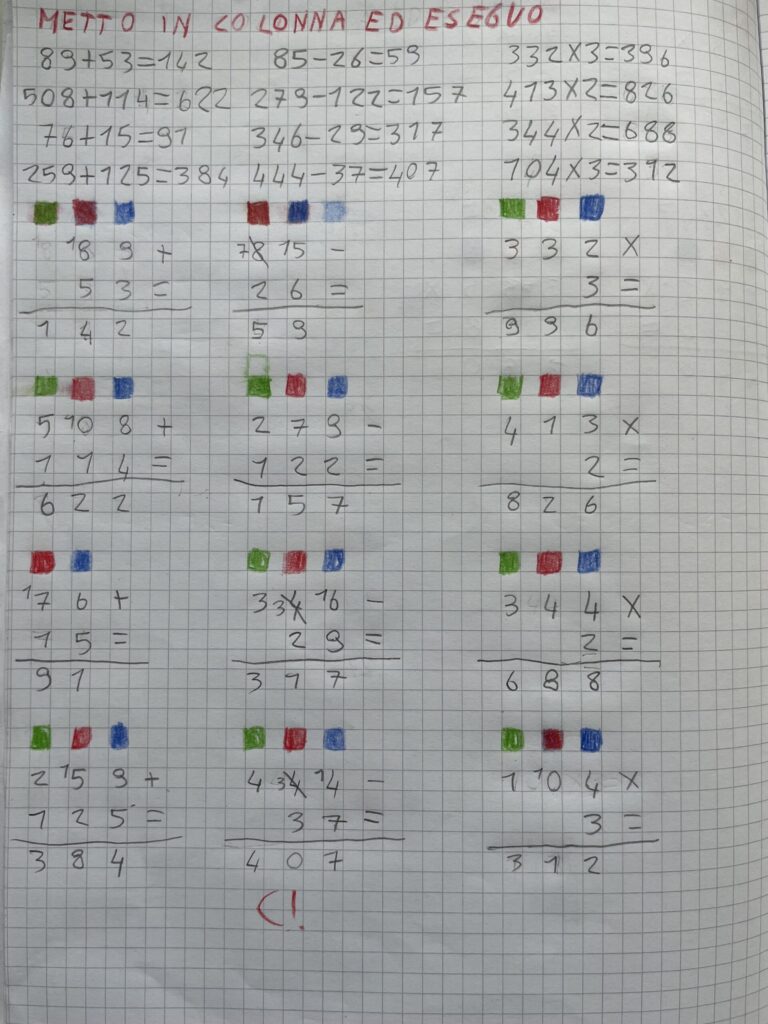 METTO IN COLONNA ED ESEGUO
89+53=142 85-26=59 332X3=996
508+114=622 279-122=157 413X2=826
76+15=91 346-29=317 344X2=688
259+125=384 444-37=407 104X3=312
18 9 + 78 15 - 3 3 2 X
5 3 = 2 6 = 3 =
1 4 2 5 9 9 9 6
5 10 8 + 2 7 9 - 4 1 3 X
1 1 4 = 1 2 2 = 2 =
6 2 2 1 5 7 8 2 6
17 6 + 3 34 16 - 3 4 4 X
1 5 = 2 9 = 2 =
9 1 3 1 7 6 8 8
2 15 9 + 4 34 14 - 1 10 4 X
1 2 5 = 3 7 = 3 =
3 8 4 4 0 7 3 1 2
C!